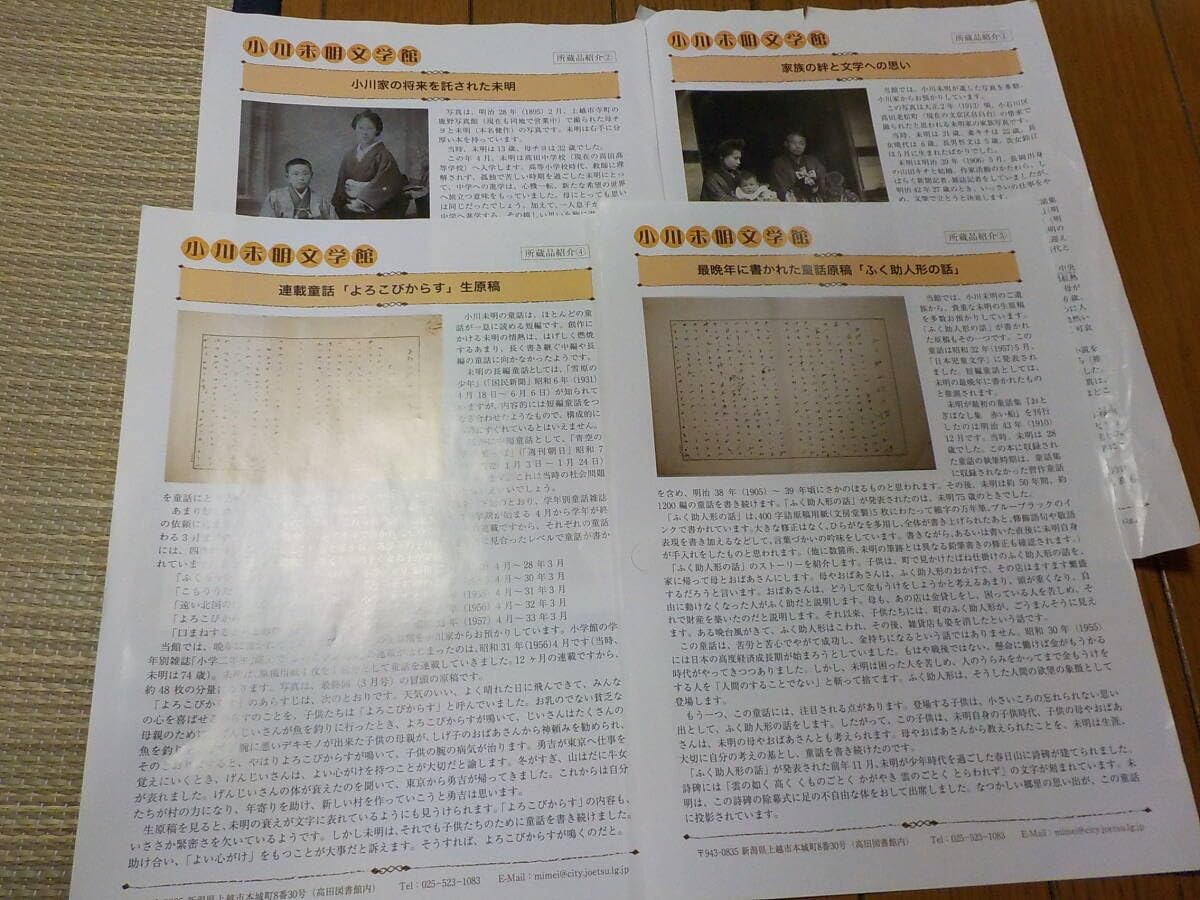 小川未明文学館
所蔵品紹介②
小川家の将来を託された未明
写真は、明治28年(1895)2月、上越市寺町の
鹿野写真館(現在も同地で営業中)で撮られた母チ
ヨと未明(本名健作)の写真です。未明は右手に分
厚い本を持っています。
当時、未明は13歳、母チヨは32歳でした。
この年4月、未明は高田中学校(現在の高田高
等学校)へ入学します。高等小学校時代、教師に理
解されず、孤独で苦しい時期を過ごした未明にとっ
て、中学への進学は、心機一転、新たな希望の世界
へ旅立つ意味をもっていました。母にとっても思い
は同じだったでしょう。加えて、一人息子が
小川未明文学館
所蔵品紹介①
家族の絆と文学への思い
当館では、小川未明が遺した写真を多数、
小川家からお預かりしています。
この写真は大正2年(1913)頃、小石川区
高田老松町(現在の文京区目白台)の借家で
撮られたと思われる未明家の家族写真です。
当時、未明は31歳、妻キチは25歳、長
女晴代は6歳、長男哲文は5歳、次女鈴江
は5月に生まれたばかりでした。
未明は明治39年(1906)5月、長岡出身
の山田キチと結婚。作家活動のかたわら、し
ばらく新聞記者、雑誌記者をしていましたが、
明治42年27歳のとき、いっさいの仕事をや
め、文筆で立とうと決意します。
小川未明文学館
所蔵品紹介④
連載童話「よろこびからす」生原稿
小川未明の童話は、ほとんどの童
話が一息に読める短編です。創作に
かける未明の情熱は、はげしく燃焼
するあまり、長く書き継ぐ中編や長
編の童話に向かなかったようです。
未明の長編童話としては、「雪原の
少年」(「国民新聞」昭和6年(1931)
4月18日~6月6日)が知られて
いますが、内容的には短編童話をつ
なぎ合わせたようなもので、構成的に
すぐれているとはいえません。
童話として、「青空の
(「週刊朝日」昭和7
1月3日~1月24日)
これは当時の社会問題
を童話にと
いえいでしょう。
あまり
とおり、学年別童話雑誌
の依頼に
学説が始まる4月から学年が終
わる3月ま
連載ですから、それぞれの童話
には、四
に見合ったレベルで童話が書か
れています
4月~28年3月
4月~30年3月
「こもりうた
4月~31年3月
「遠い北国の
(1956)4月~32年3月
「よろこびか
(1957)4月~33年3月
「口まねする
当館では、晩年
小川家からお預かりしています。小学館の学
年別雑誌「小学二年生」
昭和31年(1956)4月です(当時、
未明は74歳)。未明は、原稿用紙4枚を
として童話を連載していきました。12ヶ月の連載ですから、
約48枚の分量になります。写真は、最終回(3月号)の冒頭の原稿です。
「よろこびからす」のあらすじは、次のとおりです。天気のいい、よく晴れた日に飛んできて、みんな
の心を喜ばせるからすのことを、子供たちは「よろこびからす」と呼んでいました。お乳のでない貧乏な
母親のために、げんじいさんが魚を釣りに行ったとき、よろこびからすが鳴いて、じいさんはたくさんの
魚を釣り
腕に悪いデキモノが出来た子供の母親が、しげ子のおばあさんから神頼みを勧められ、
そのとおりにすると、やはりよろこびからすが鳴いて、子供の腕の病気が治ります。勇吉が東京へ仕事を
覚えにいくとき、げんじいさんは、よい心がけを持つことが大切だと諭します。冬がすぎ、山はだに牛女
が表れました。げんじいさんの体が衰えたのを聞いて、東京から勇吉が帰ってきました。これからは自分
たちが村の力になり、年寄りを助け、新しい村を作っていこうと勇吉は思います。
生原稿を見ると、未明の衰えが文字に表れているようにも見うけられます。「よろこびからす」の内容も、
いささか緊密さを欠いているようです。しかし未明は、それでも子供たちのために童話を書き続けました。
助け合い、「よい心がけ」をもつことが大事だと訴えます。そうすれば、よろこびからすが鳴くのだと。
新潟県上越市本城町8番30号(高田図書館内) Tel:025-523-1083 E-Mail:mimei@city.joetsu.lg.jp
小川未明文学館
所蔵品紹介③
最晩年に書かれた童話原稿「ふく助人形の話」
当館では、小川未明のご遺
族から、貴重な未明の生原稿
を多数お預かりしています。
「ふく助人形の話」が書かれ
た原稿もその一つです。この
童話は昭和32年(1957)5月、
「日本児童文学」に発表され
ました。短編童話としては、
未明の最晩年に書かれたもの
と推測されます。
未明が最初の童話集『おと
ぎばなし集 赤い船』を刊行
したのは明治43年(1910)
12月です。当時、未明は28
歳でした。この本に収録され
た童話の執筆時期は、童話集
に収録されなかった習作童話
を含め、明治38年(1905)~39年頃にさかのぼるものと思われます。その後、未明は約50年間、約
1200編の童話を書き続けます。「ふく助人形の話」が発表されたのは、未明75歳のときでした。
「ふく助人形の話」は、400字詰原稿用紙(文房堂製)5枚にわたって細字の万年筆、ブルーブラックのイ
ンクで書かれています。大きな修正はなく、ひらがなを多用し、全体が書き上げられたあと、修飾語句や敬語
表現を書き加えるなどして、言葉づかいの吟味をしています。書きながら、あるいは書いた直後に未明自身
が手入れをしたものと思われます。(他に数箇所、未明の筆跡とは異なる鉛筆書きの修正も確認されます。)
「ふく助人形の話」のストーリーを紹介します。子供は、町で見かけたばね仕掛けのふく助人形の話を、
家に帰って母とおばあさんにします。母やおばあさんは、ふく助人形のおかげで、その店はますます繁盛
するだろうと言います。おばあさんは、どうして金もうけをしようかと考えるあまり、頭が重くなり、自
由に動けなくなった人がふく助だと説明します。母も、あの店は金貸しをし、困っている人を苦しめ、そ
れで財産を築いたのだと説明します。それ以来、子供たちには、町のふく助人形が、ごうまんそうに見え
ます。ある晩台風がきて、ふく助人形はこわれ、その後、雑貨店も姿を消したという話です。
この童話は、苦労と苦心でやがて成功し、金持ちになるという話ではありません。昭和30年(1955)
には日本の高度経済成長期が始まろうとしていました。もはや戦後ではない、懸命に働けば金がもうかる
時代がやってきつつありました。しかし、未明は困った人を苦しめ、人のうらみをかってまで金もうけを
する人を「人間のすることでない」と斬って捨てます。ふく助人形は、そうした人間の欲望の象徴として
登場します。
もう一つ、この童話には、注目される点があります。登場する子供は、小さいころの忘れられない思い
出として、ふく助人形の話をします。したがって、この子供は、未明自身の子供時代、子供の母やおばあ
さんは、未明の母やおばあさんとも考えられます。母やおばあさんから教えられたことを、未明は生涯、
大切に自分の考えの基とし、童話を書き続けたのです。
「ふく助人形の話」が発表された前年11月、未明が少年時代を過ごした春日山に詩碑が建てられました。
詩碑には「雲の如く 高く くものごとく かがやき 雲のごとく とらわれず」の文字が刻まれています。未
明は、この詩碑の除幕式に足の不自由な体をおして出席しました。なつかしい郷里の思い出が、この童話
に投影されています。
〒943-0835 新潟県上越市本城町8番30号(高田図書館内) Tel:025-523-1083 E-Mail:mimei@city.joetsu.lg.jp